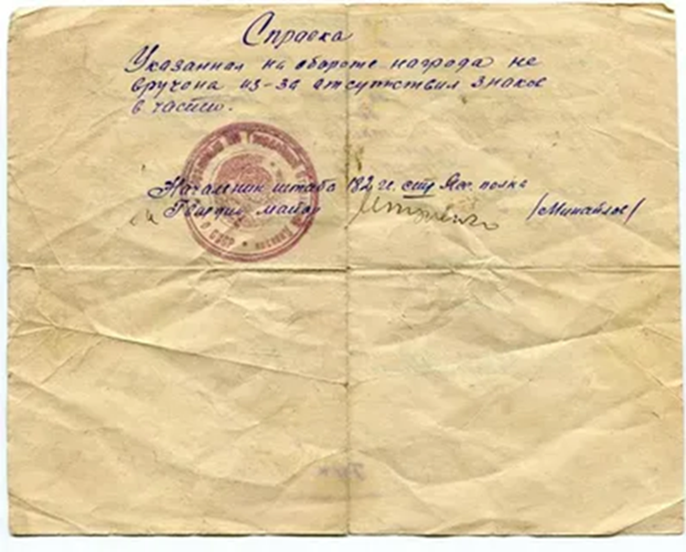 Справка
Указанная на обороте награда не
вручена из-за отсутствия знаков
в части.
Начальник штаба 182 гв. стр Яс. полка
Гвардии майор /Михайлов/